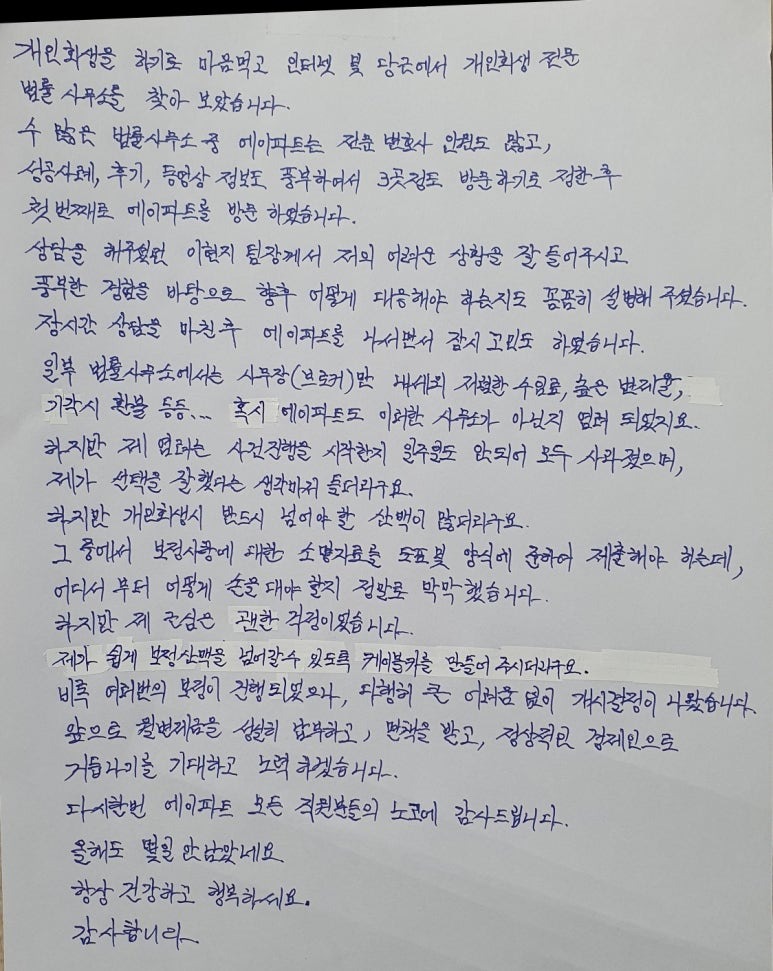 개인회생을 하기로 마음먹고 인터넷 및 당근에서 개인회생 전문
법률 사무소를 찾아 보았습니다.
수 많은 법률사무소 중 에이파트는 전문 변호사 인원도 많고,
성공사례, 후기, 동영상 정보도 풍부하여서 3곳정도 방문하기로 정한 후
첫 번째로 에이파트를 방문 하였습니다.
상담을 해주셨던 이현지 팀장께서 저의 어려운 상황을 잘 들어주시고
풍부한 경험을 바탕으로 향후 어떻게 대응해야 하는지도 꼼꼼히 설명해 주셨습니다.
장시간 상담을 마친후 에이파트를 나서면서 잠시 고민도 하였습니다.
일부 법률사무소에서는 사무장(브로커)만 내세워 저렴한 수임료, 높은 변제율,
기각시 환불 등등... 혹시 에이파트도 이러한 사무소가 아닌지 염려 되었지요.
하지만 제 염려는 사건진행을 시작한지 일주일도 안되어 모두 사라졌으며,
제가 선택을 잘했다는 생각마저 들더라구요.
하지만 개인회생시 반드시 넘어야 할 산맥이 많더라구요.
그 중에서 보정사항에 대한 소명자료를 도표및 양식에 준하여 제출해야 하는데,
어디서 부터 어떻게 손을 대야 할지 정말로 막막했습니다.
하지만 제 근심은 괜한 걱정이었습니다.
제가 쉽게 보정산맥을 넘어갈수 있도록 케이블카를 만들어 주시더라구요.
비록 여러번의 보정이 진행되었으나, 다행히 큰 어려움 없이 개시결정이 나왔습니다.
앞으로 월변제금을 성실히 납부하고, 면책을 받고, 정상적인 경제인으로
거듭나기를 기대하고 노력 하겠습니다.
다시한번 에이파트 모든 직원분들의 노고에 감사드립니다.
올해도 몇일 안남았네요
항상 건강하고 행복하세요.
감사합니다.